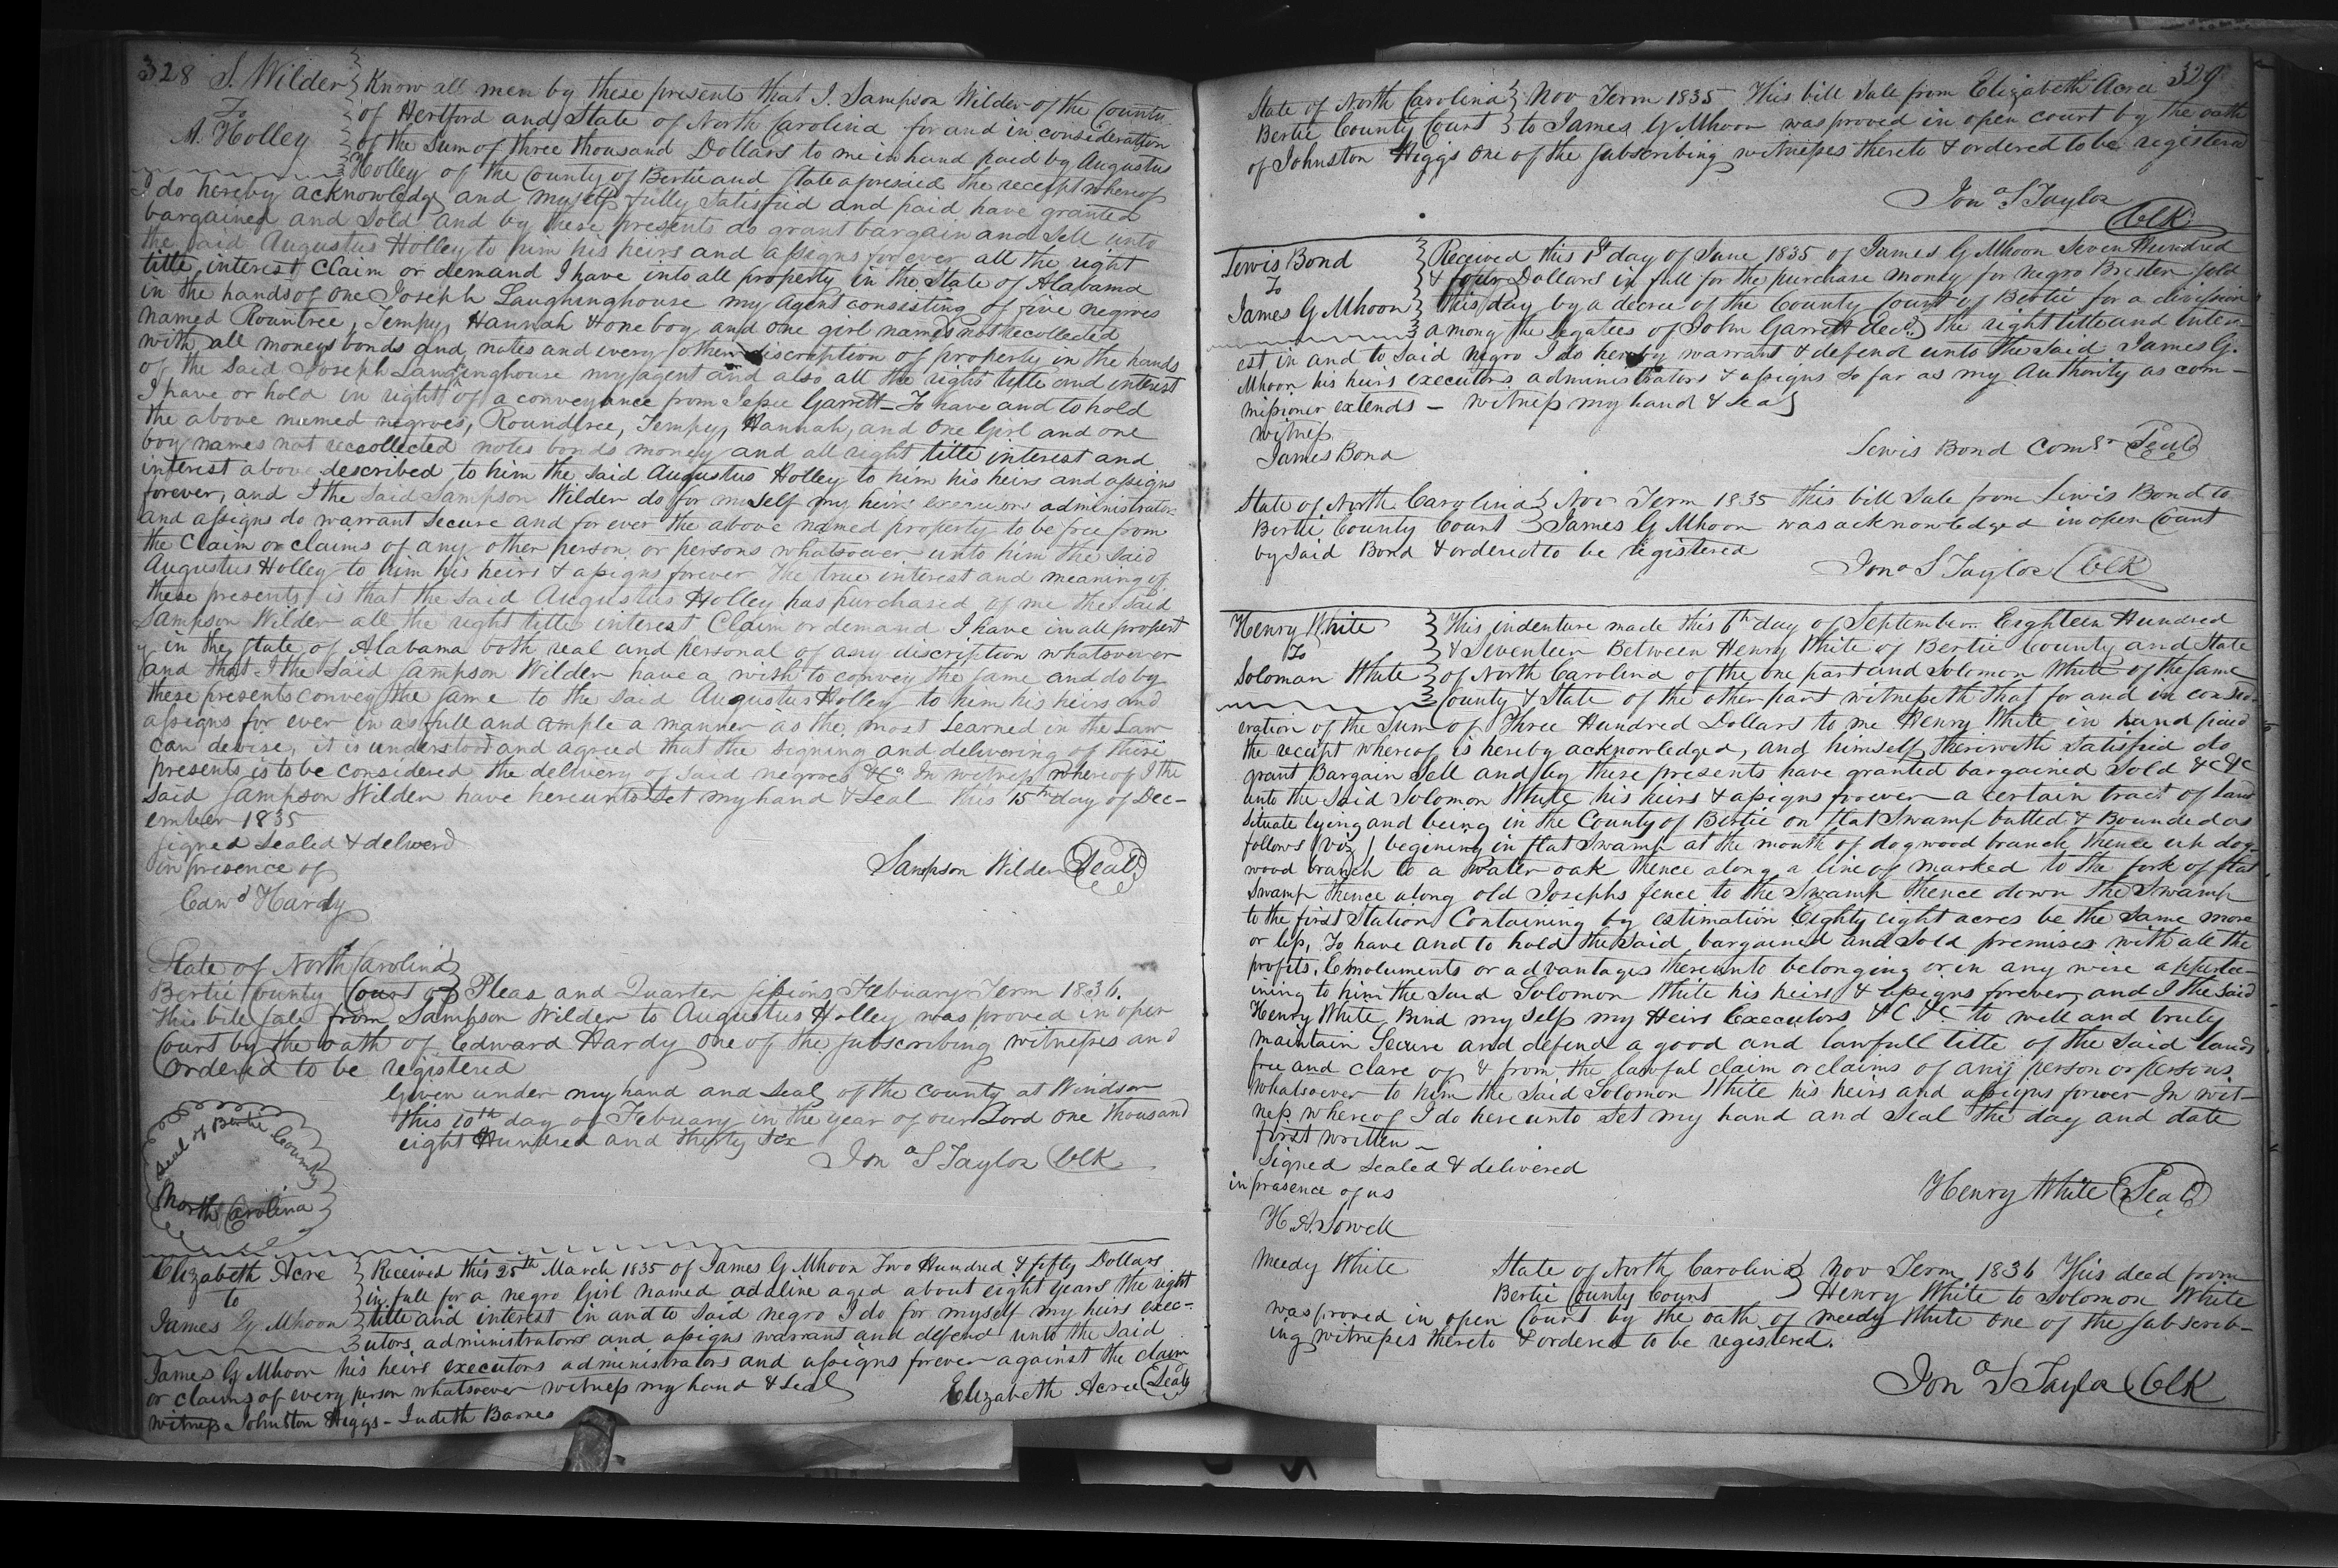 328 S. Wilder Know all men by these presents that I. Sampson Wilder of the County
To of Hertford and State of North Carolina for and in consideration
A. Holley of the Sum of three thousand Dollars to me in hand paid by Augustus
Holley of the County of Bertie and State aforesaid the receipt whereof
I do hereby acknowledge and myself fully Satisfied and paid have granted
bargained and Sold and by these presents do grant bargain and Sell unto
the said Augustus Holley to him his heirs and assigns for ever all the right
title, interest Claim or demand I have into all property in the State of Alabama
in the hands of one Joseph Laughinghouse my agent consisting of five negroes
named Rountree, Tempy, Hannah & one boy and one girl names not recollected
with all moneys bonds and notes and every other discription of property in the hands
of the Said Joseph Langinghouse my agent and also all the right title and interest
I have or hold in right of a conveyance from Garrett - To have and to hold
the above named negroes, Roundtree, Tempy, Hannah, and one Girl and one
boy names not recollected notes bonds money and all right title interest and
interest above described to him the Said Augustus Holley to him his heirs and assigns
forever, and I the Said Sampson Wilder do for meself my heirs executors administrators
and assigns do warrant Secure and for ever the above named property to be free from
the Claim or claims of any other person or persons whatsoever unto him the Said
Augustus Holley to him his heirs & assigns forever The true interest and meaning of
these presents is that the Said Augustus Holley has purchased of me the Said
Sampson Wilder all the right title interest Claim or demand I have in all propert
y in the State of Alabama both real and personal of any discription whatsoever
and that I the Said Sampson Wilder have a wish to convey the Same and do by
these presents convey the Same to the Said Augustus Holley to him his heirs and
assigns for ever in as full and ample a manner as the most Learned in the Law
can devise, it is understood and agreed that the signing and delivering of these
presents is to be considered the delivery of Said negroes &c. In witness whereof I the
Said Sampson Wilder have hereunto Set my hand & Seal this 15th day of Dec-
ember 1835
Signed Sealed & deliverd
in presence of Sampson Wilder Seal
Edwd Hardy
State of North Carolina
Bertie County Court of Pleas and Quarter Sessions Febuary Term 1836.
This bill Sale from Sampson Wilder to Augustus Holley was proved in open
Court by the oath of Edward Hardy one of the Subscribing witnesses and
ordered to be registered
Given under my hand and Seal of the County at Windsor
this 10th day of Febuary in the year of our Lord one thousand
eight Hundred and thirty Six
Jona S Taylor Clk
Seal of Bertie County
North Carolina
Elizabeth Acre Received this 25th March 1835 of James G Mhoon Two Hundred & fifty Dollars
to in full for a negro Girl named addline aged about eight years the right
James G Mhoon title and interest in and to Said negro I do for myself my heirs exec-
utors administrators and assigns warrant and defend unto the Said
James G Mhoon his heirs executors administrators and assigns forever against the claim
or claims of every person whatsoever witness my hand & Seal Elizabeth Acree Seal
witness Johnston Higgs - Judith Barnes
State of North Carolina Nov Term 1835 This bill Sale from Elizabeth Acree 329
Bertie County Court to James G Mhoon was proved in open court by the oath
of Johnston Higgs one of the Subscribing witnesses thereto & ordered to be registered
Jona S Taylor
Clk
Lewis Bond Received this 1st day of June 1835 of James G Mhoon Seven Hundred
To & Dollars in full for the purchase money for negro Sold
James G Mhoon this day by a decree of the County Court of Bertie for a division
among the legatees of John Garrett decd. the right title and inter-
est in and to Said negro I do hereby warrant & defend unto the Said James G.
Mhoon his heirs executors administrators & assigns so far as my Authority as com-
missioner extends - witness my hand & Seal
witness
James Bond Lewis Bond Comsr Seal
State of North Carolina Nov Term 1835 this bill Sale from Lewis Bond to
Bertie County Court James G Mhoon was acknowledged in open Court
by Said Bond & ordered to be registered
Jona S Taylor Clk
Henry White This indenture made this 6th day of September Eighteen Hundred
To & Seventeen Between Henry White of Bertie County and State
Soloman White of North Carolina of the one part and Solomon White of the Same
County & State of the other part witnesseth that for and in consid-
eration of the Sum of Three Hundred Dollars to me Henry White in hand paid
the receipt whereof is hereby acknowledged, and himself therewith Satisfied do
grant Bargain Sell and by these presents have granted bargained Sold &c &c
unto the Said Solomon White his heirs & assigns forever a certain tract of Land
Situate lying and being in the County of Bertie on flat Swamp butted & Bounded as
follows (viz) begening in flat Swamp at the mouth of dogwood branch thence up dog-
wood branch to a Water oak thence along a line of marked to the fork of flat
Swamp thence along old Josephs fence to the Swamp thence down the Swamp
to the first Station Containing by estimation Eighty eight acres be the Same more
or less, To have and to hold the Said bargained and Sold premises with all the
profits, Emoluments or advantages thereunto belonging or in any wise appurtee-
ining to him the Said Solomon White his heirs & assigns forever, and I the Said
Henry White Bind my Self my Heirs Executors &C &C to well and truly
maintain Secure and defend a good and lawfull title of the Said lands
free and clare of & from the lawful claim or claims of any person or persons
whatsoever to him the Said Solomon White his heirs and assigns forever In wit-
ness whereof I do hereunto Set my hand and Seal the day and date
first written -
Signed Sealed & delivered
in prasence of us Henry White Seal
H. A. Sowell
Meedy White State of North Carolina Nov Term 1836 This deed from
Bertie County Court Henry White to Solomon White
was proved in open Court by the oath of Meedy White one of the Subscrib-
ing witnesses thereto & ordered to be registered.
Jona S Taylor Clk